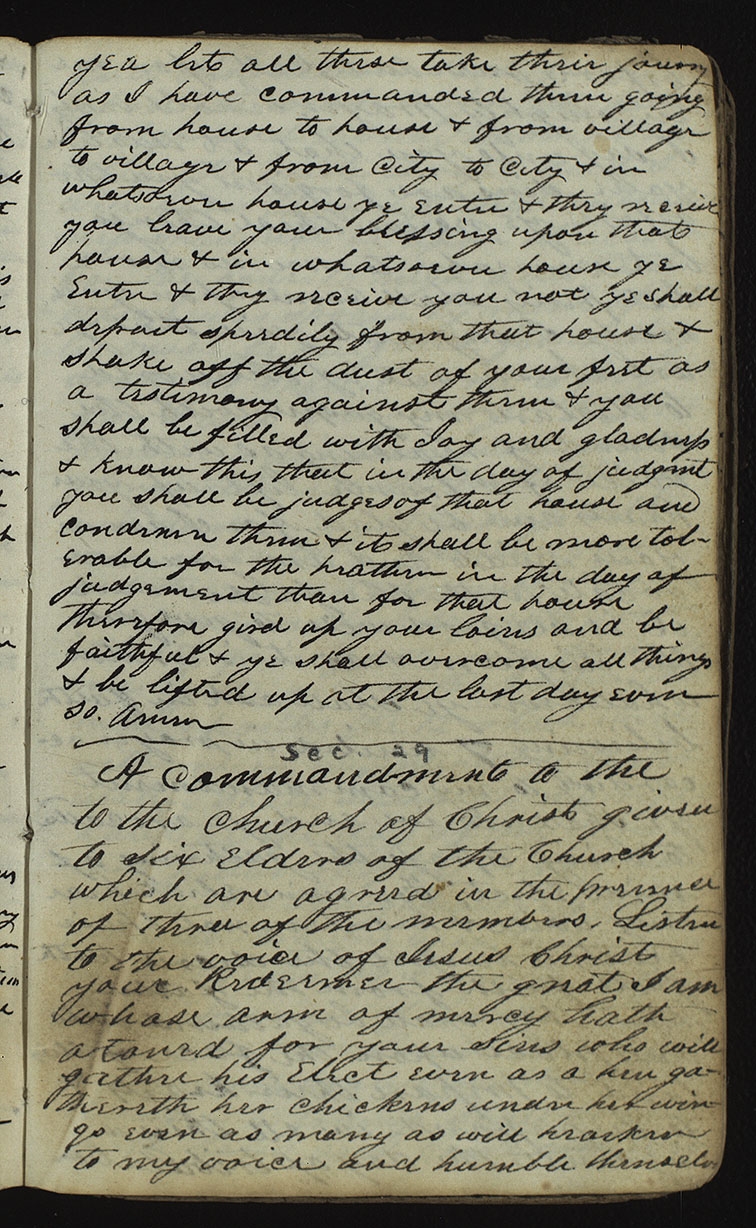 yea let all these take their journy
as I have commanded them going
from house to house & from village
to village & from City to City & in
whatsoever house ye enter & they receive
you leave your blessing upon that
house & in whatsoever house ye
Enter & they receive you not ye shall
depart speedily from that house &
shake off the dust of your feet as
a testimony against them & you
shall be filled with Joy and gladness
& know this that in the day of judgmt
you shall be judges of that house and
condemn them & it shall be more tol-
erable for the heathen in the day of
judgement than for that house
therefore gird up your loins and be
faithful & ye shall overcome all things
& be lifted up at the last day even
so. Amen
Sec. 29
A Commandment to the
to the Church of Christ given
to six Elders of the Church
which are agreed in the presence
of three of the members. Listen
to the voice of Jesus Christ
your Redeemer the great I am
whose arm of mercy hath
atoned for your Sins who will
gather his Elect even as a hen ga-
thereth her chickens under her win
gs even as many as will hearken
to my voice and humble themselv